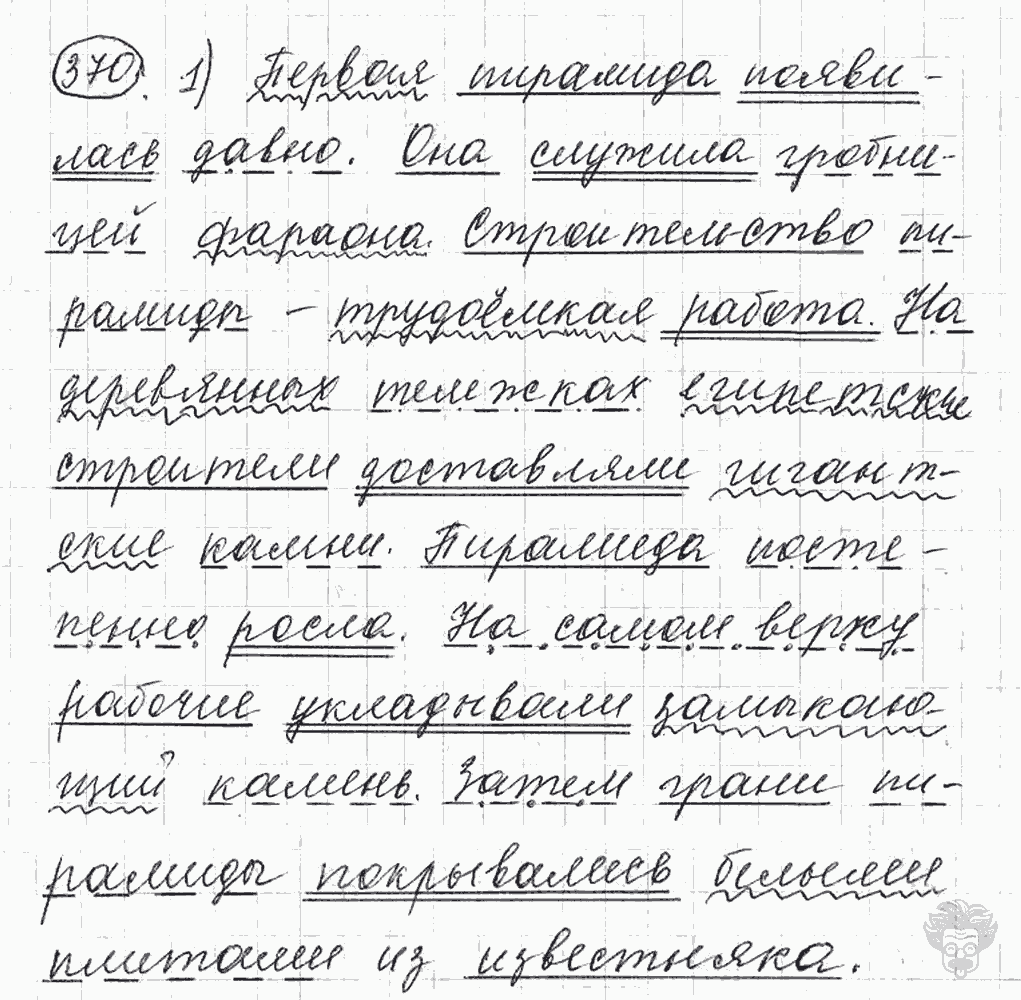 370. 1) Первая пирамида появи-
лась давно. Она служила гробни-
цей фараона. Строительство пи-
рамиды – трудоёмкая работа. На
деревянных тележках египетские
строители доставляли гигант-
ские камни. Пирамида посте-
пенно росла. На самом верху
рабочие укладывали замыкаю-
щий камень. Затем грани пи-
рамиды покрывались белыми
плитами из известняка.